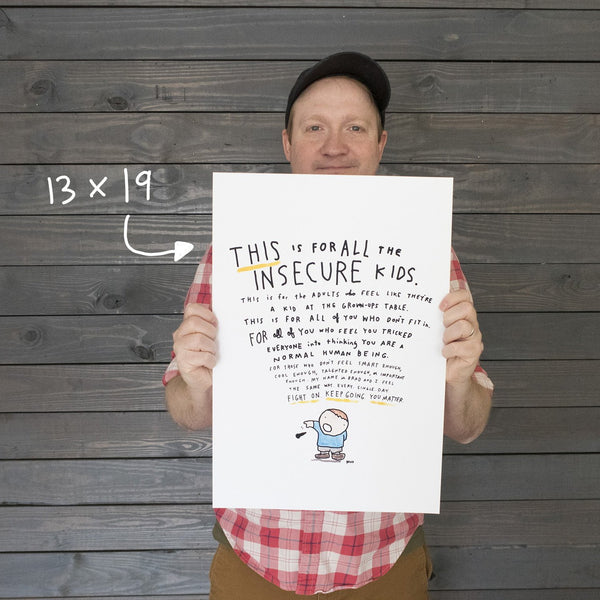 13 x 19
THIS IS FOR ALL THE
INSECURE KIDS.
THIS IS for the ADULTS who FEEL LIKE THEY'RE
A KID AT THE GROWN-UPS TABLE.
THIS IS FOR ALL of YOU WHO DON'T FIT in.
FOR all of YOU WHO FEEL YOU TRICKED
EVERYONE into THINKING YOU ARE A
NORMAL HUMAN BEING.
FOR THOSE WHO DON'T FEEL SMART ENOUGH,
COOL ENOUGH, TALENTED ENOUGH, or IMPORTANT
ENOUGH. MY NAME is BRAD and I FEEL
THE SAME WAY EVERY SINGLE DAY.
FIGHT ON. KEEP GOING. YOU MATTER.